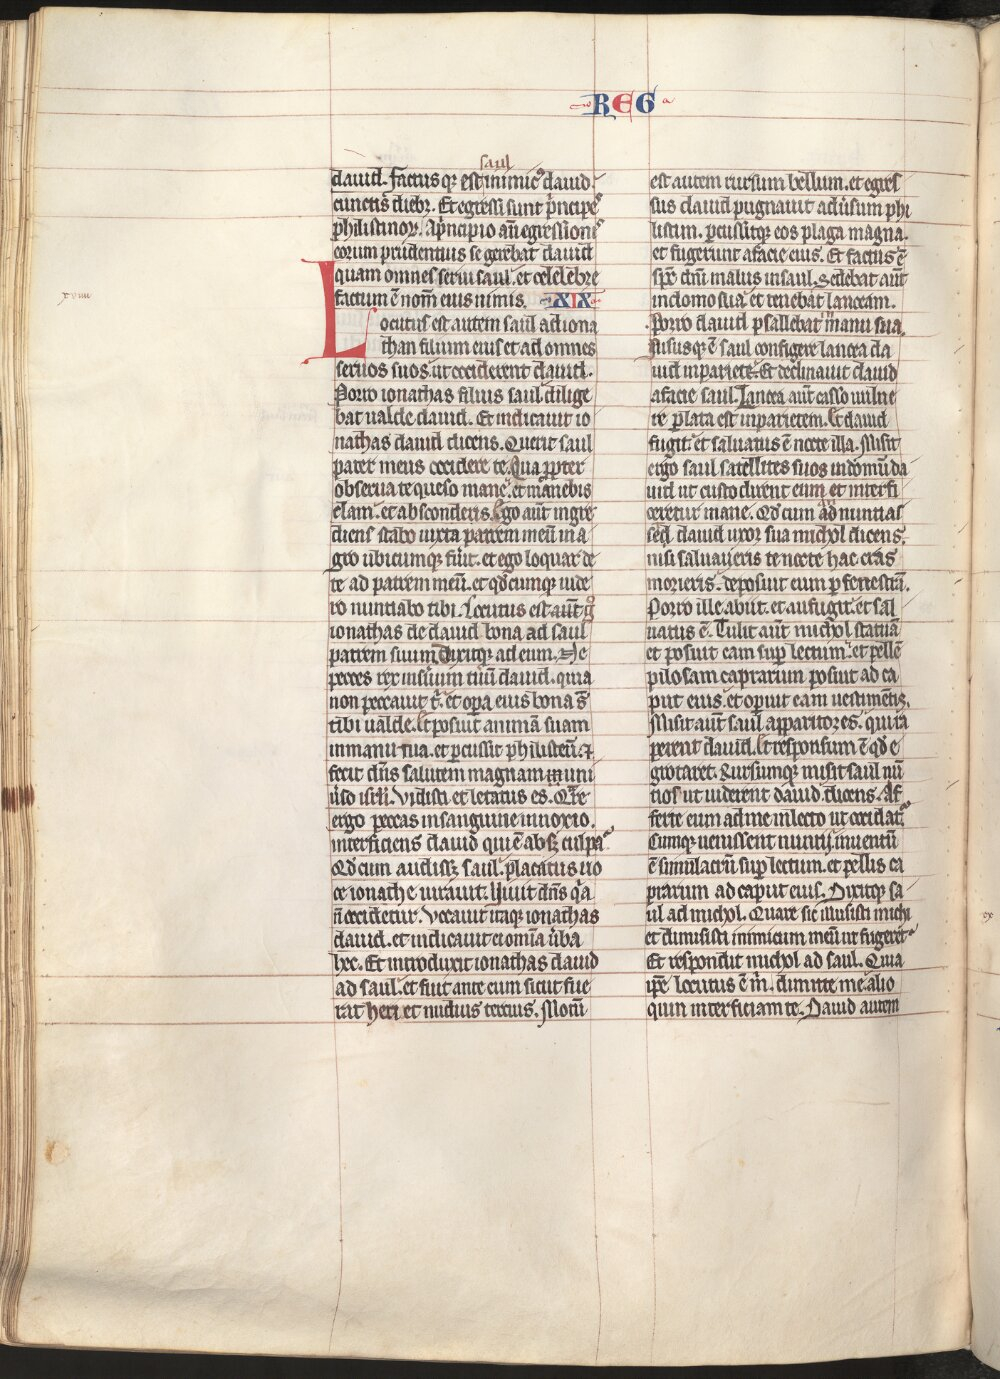 REG
saul
dauid. factusq; est inimic᷒ dauid
cunctis dieb;. Et egressi sunt p̄ncipes
philistinoꝝ. A p̄ncipio aūt egressionis
eorum prudentius se gerebat dauid
quam omnes serui saul. et celelebre
factum ē nom̄ eius nimis. XIX
Locutus est autem saul ad iona
than filium eius et ad omnes
seruos suos ut occiderent dauid.
Porro ionathas filius saul dilige
bat ualde dauid. Et indicauit io
nathas dauid dicens. Querit saul
pater meus occidere te. Qua ꝓpter
obserua te queso mane. et manebis
clam. et absconderis. Ego aūt ingre
diens stabo iuxta patrem meū in a
gro ubicumq; fūit. et ego loquar de
te ad patrem meū. et qd̄cumq; uide
ro nuntiabo tibi. Locutus est aūt g̊
ionathas de dauid bona ad saul
patrem suum. Dixitq; ad eum. Ne
pecces rex in s̄uum tuū dauid. quia
non peccauit t̄. et oꝑa eius bona s̄
tibi ualde. Et posuit animā suam
in manu tua. et ꝑcussit philisteū. ⁊
fecit dn̄s salutem magnam uni
ūso isrl̄i. Vidisti et letatus es. Q̄re
ergo peccas in sanguine innoxio.
interficiens dauid qui ē absq; culpa.
Qd̄ cum audiss; saul. placatus uo
ce ionathe iurauit. Viuit dn̄s q̄a
n̄ occidetur. Vocauit itaq; ionathas
dauid. et indicauit ei om̄ia ūba
hec. Et introduxit ionathas dauid
ad saul. et fuit ante eum sicut fue
rat heri et nudius tercius. Motū
est autem rursum bellum. et egres
sus dauid pugnauit adūsum phi
listiim. ꝑcussitq; eos plaga magna.
et fugerunt a facie eius. Et factus ē
sp̄c dn̄i malus in saul. Sedebat aūt
in domo sua. et tenebat lanceam.
Porro dauid psallebat in manu sua.
Nisusq; ē saul configere lancea da
uid in pariete. Et declinauit dauid
a facie saul. Lancea aūt casso uulne
re ꝑlata est in parietem. Et dauid
fugit. et saluatus ē nocte illa. Misit
ergo saul satellites suos in domū da
uid ut custodirent eum et interfi
ceretur mane. Qd̄ cum ad nuntias
sed dauid uxor sua michol dicens.
nisi saluaueris te nocte hac cras
morieris. deposuit eum ꝑ fenestrā.
Porro ille abiit. et aufugit. et sal
uatus ē. Tulit aūt michol statuā
et posuit eam suꝑ lectum. et pellē
pilosam caprarum posuit ad ca
put eius. et oꝑuit eam uestimentis.
Misit aūt saul apparitores. qui ra
perent dauid. Et responsum ē qd̄ e
grotaret. Rursumq; misit saul nū
tios ut uiderent dauid. dicens. Af
ferte eum ad me in lecto ut occidat̄.
Cumq; uenissent nuntij. inuentū
ē simulacrū suꝑ lectum. et pellis ca
prarum ad caput eius. Dixitq; sa
ul ad michol. Quare sic illusisti michi
et dimisisti inimicum meū ut fugeret.
Et respondit michol ad saul. Quia
ip̄e locutus ē m̄. dimitte me. alio
quin interficiam te. Dauid autem